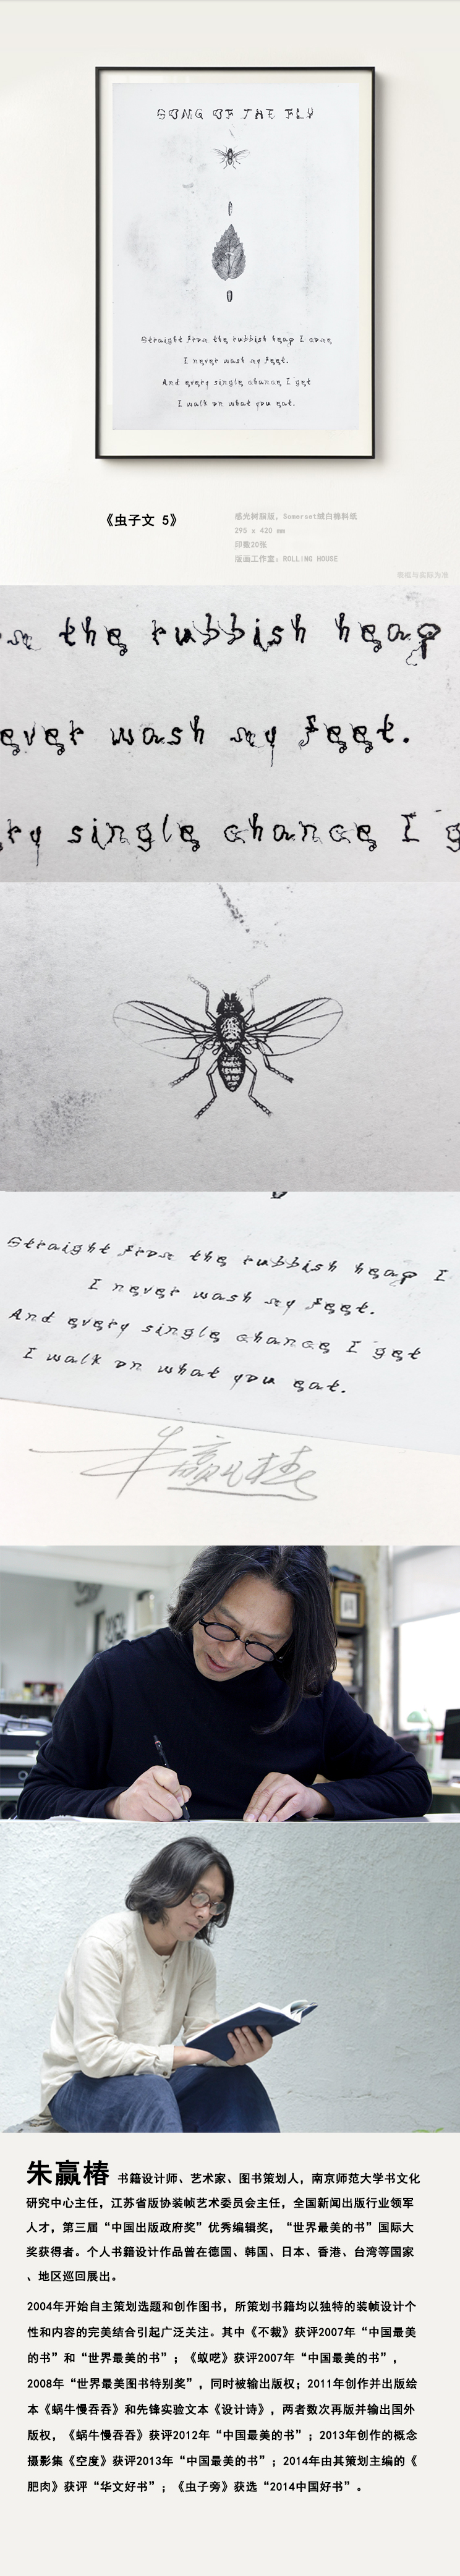 SONG OF THE FLY
Straight from the rubbish heap I come,
I never wash my feet.
And every single chance I get
I walk on what you eat.
《虫子文 5》
感光树脂版，Somerset绒白棉料纸
295 x 420 mm
印数20张
版画工作室：ROLLING HOUSE
the rubbish heap
ever wash my feet.
ry single chance I g
Straight from the rubbish heap I
I never wash my feet.
And every single chance I get
I walk on what you eat.
朱赢椿
朱赢椿 书籍设计师、艺术家、图书策划人，南京师范大学书文化
研究中心主任，江苏省版协装帧艺术委员会主任，全国新闻出版行业领军
人才，第三届“中国出版政府奖”优秀编辑奖，“世界最美的书”国际大
奖获得者。个人书籍设计作品曾在德国、韩国、日本、香港、台湾等国家
、地区巡回展出。
2004年开始自主策划选题和创作图书，所策划书籍均以独特的装帧设计个
性和内容的完美结合引起广泛关注。其中《不裁》获评2007年“中国最美
的书”和“世界最美的书”；《蚁呓》获评2007年“中国最美的书”，
2008年“世界最美图书特别奖”，同时被输出版权；2011年创作并出版绘
本《蜗牛慢吞吞》和先锋实验文本《设计诗》，两者数次再版并输出国外
版权，《蜗牛慢吞吞》获评2012年“中国最美的书”；2013年创作的概念
摄影集《空度》获评2013年“中国最美的书”；2014年由其策划主编的《
肥肉》获评“华文好书”；《虫子旁》获选“2014中国好书”。